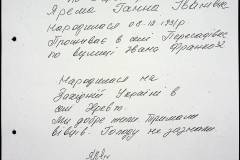 Ярема Ганна Іванівна
Народилася 08.10.1931р
Проживає в смт Пересадівка
по вулиці Івана Франка
Народилася на
Західній Україні в
смт
Ми добре жили тримали
вівців. Голоду не зазнали.